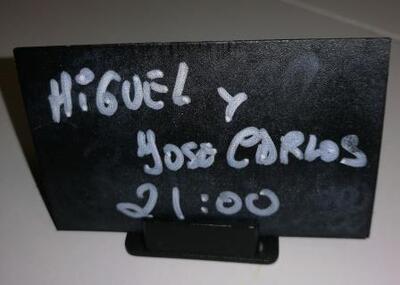 MiGUEL Y
JOSE CARLOS
21:00